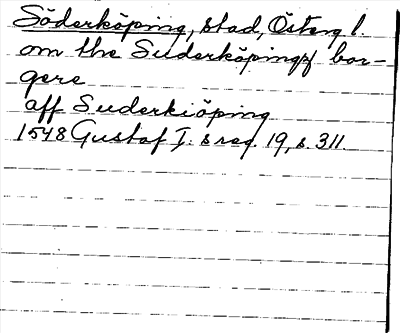 Söderköping, stad, Österg l.
om the Suderköpingz bor-
gere
aff Suderkiöping
1548 Gustaf I:s reg. 19, s. 311.